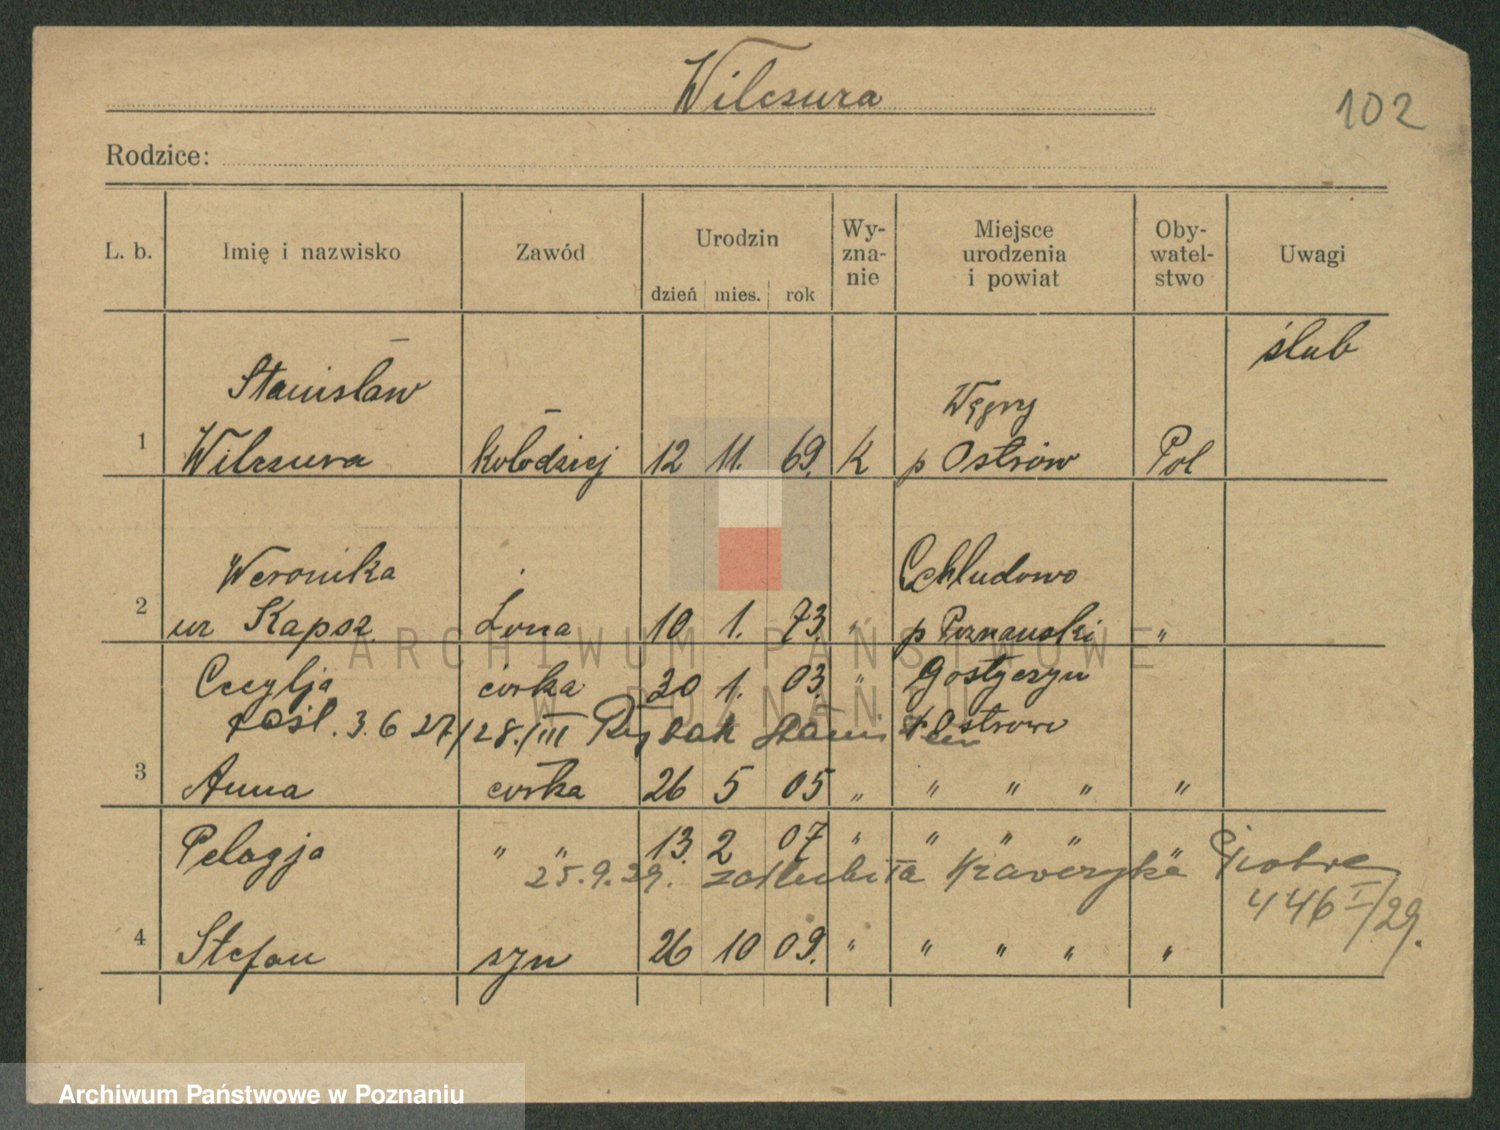 Wilczura
102
Rodzice:
L. b. Imię i nazwisko Zawód Urodzin dzień mies. rok Wy-zna-nie Miejsce urodzenia i powiat Oby-watel-stwo Uwagi
ślub
Stanisław Węgry
1 Wilczura kołodziej 12 11. 69. K p Ostrów Pol
Weronika Chludowo
2 ur Kapsz. żona 10 1. 73. " p Poznański "
Cecylja córka 30 1. 03. " Gostyczyn
pośl. 3. 6 27/28./III Stanisław p Ostrowo
3 Anna córka 26 5 05 " " " " "
Pelagja " " 13. 2 07 " " " " "
25.9.29. zaślubiła Piotra
446 I/29.
4 Stefan syn 26 10 09. " " " " "
ARCHIWUM PAŃSTWOWE
W POZNANIU
Archiwum Państwowe w Poznaniu